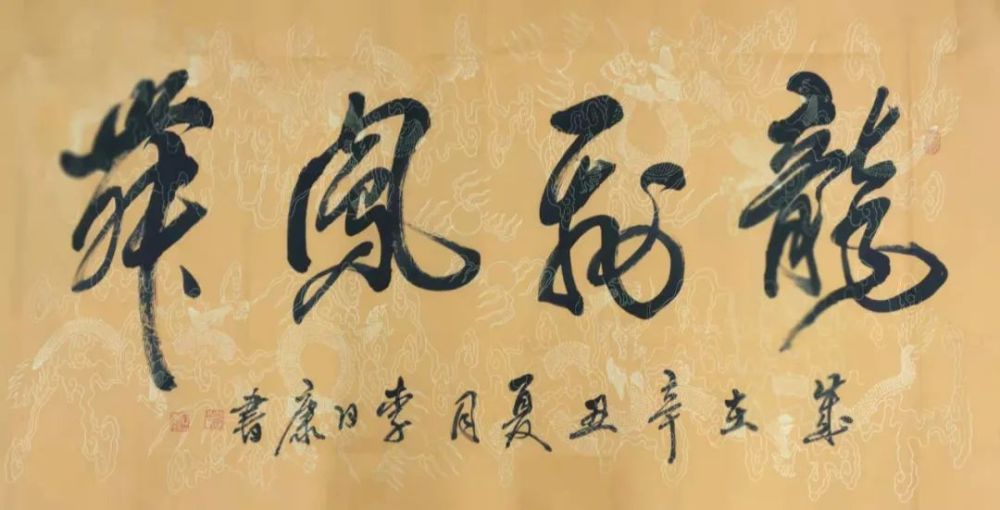 龍飛鳳舞
歲在辛丑夏月李日康書